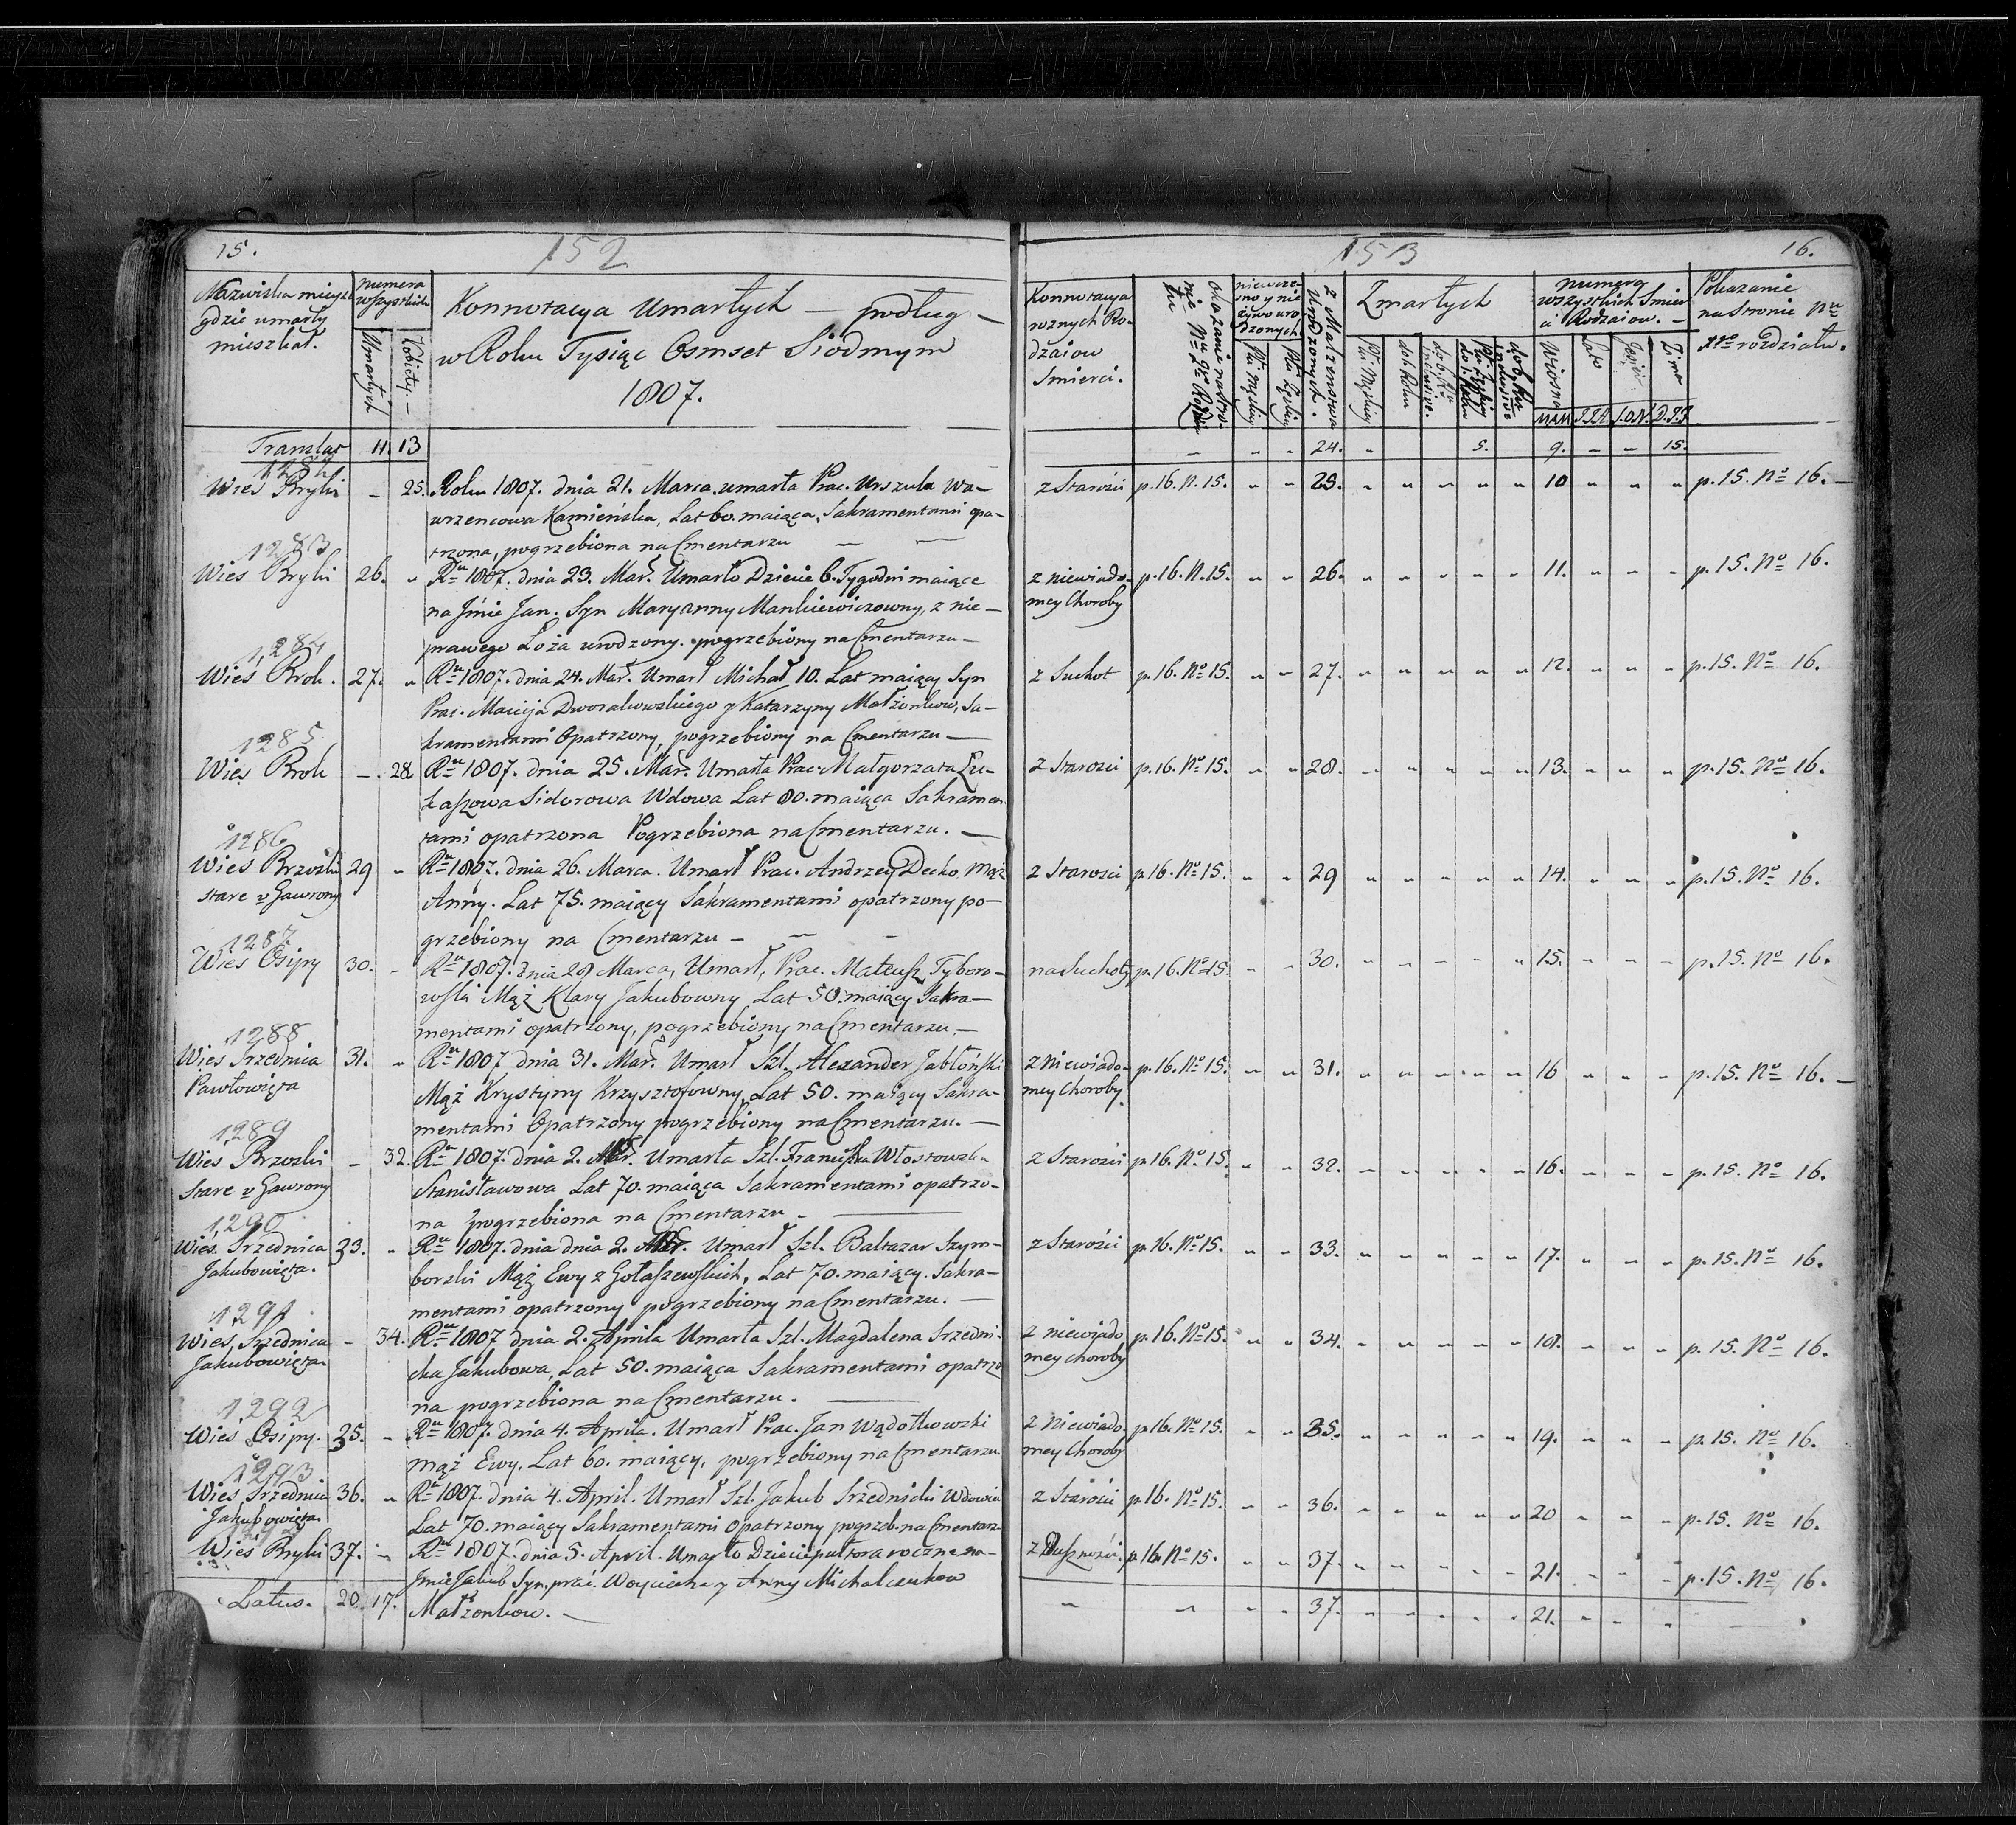 15.
152
Nazwiska mieysc
gdzie umarły
mieszkał.
numera
wszystkich
Umarłych
Kobiety. —
Konnotacya Umarłych — podług —
w Roku Tysiąc Osmset Siodmym
1807.
Translat 11. 13
1282
Wies Bryki – 25. Roku 1807. dnia 21. Marca. umarła Prac. Urszula Wa-
wrzencowa Kamieńska, Lat 60. maiąca, Sakramentami opa-
trzona, pogrzebiona na Cmentarzu —
1283
Wies Bryki 26. „ Ru 1807. dnia 23. Mar. Umarło Dziecie 6. Tygodni maiące
na Jmie Jan. Syn Maryanny Mankiewiczowny, z nie-
prawego Łoża urodzony. pogrzebiony na Cmentarzu —
1284
Wies Brok. 27. „ Ru 1807. dnia 24. Mar. Umarł Michał 10. Lat maiący Syn
Prac. Macieja Dworakowskiego y Katarzyny Małżonkow, Sa-
kramentami Opatrzony, pogrzebiony na Cmentarzu —
1285
Wies Brok – 28. Ru 1807. dnia 25. Mar. Umarła Prac. Małgorzata Łu-
kaszowa Sidorowa Wdowa Lat 80. maiąca Sakramen-
tami opatrzona Pogrzebiona na Cmentarzu. —
1286
Wies Brzoski 29 „ Ru 1807. dnia 26. Marca. Umarł Prac. Andrzey Decko Mąż
stare v Gawrony Anny. Lat 75. maiący Sakramentami opatrzony po-
grzebiony na Cmentarzu — — —
1287
Wies Osipy 30. – Ru 1807. dnia 29 Marca, Umarł, Prac. Mateusz Tyboro-
wski Mąż Klary Jakubowny Lat 50. maiący Sakra-
mentami opatrzony, pogrzebiony na Cmentarzu. —
1288
Wies Srzednica 31. „ Ru 1807 dnia 31. Mar. Umarł Szl. Alexander Jabłoński
Pawłowięta Mąż Krystyny Krzysztofowny, Lat 50. maiący Sakra-
mentami Opatrzony pogrzebiony na Cmentarzu. —
1289
Wies Brzoski – 32. Ru 1807. dnia 2. Umarła Szl. Franciszka Włostowska
Stare v Gawrony Stanisławowa Lat 70. maiąca Sakramentami opatrzo-
na pogrzebiona na Cmentarzu —
1290
Wies Srzednica 33. – Ru 1807. dnia dnia 2. Umarł Szl. Baltazar Szym-
Jakubowięta. borski Mąż Ewy z Gołaszewskich, Lat 70. maiący. Sakra-
mentami opatrzony pogrzebiony na Cmentarzu. —
1291
Wies Srzednica – 34. Ru 1807 dnia 2. Aprila Umarła Szl. Magdalena Srzedni-
Jakubowięta cka Jakubowa, Lat 50. maiąca Sakramentami opatrzo-
na pogrzebiona na Cmentarzu. —
1292
Wies Osipy. 35. – Ru 1807. dnia 4. Aprila. Umarł Prac. Jan Wądołkowski
mąż Ewy. Lat 60. maiący, pogrzebiony na Cmentarzu
1293
Wies Srzednica 36. „ Ru 1807. dnia 4. April. Umarł Szl. Jakub Srzednicki Wdowiec
Jakubowięta Lat 70. maiący Sakramentami Opatrzony pogrzeb. na Cmentarz
Wies Bryki 37. – Ru 1807. dnia 5. April. Umarło Dziecie pułtora roczne na
Jmie Jakub Syn. prac. Woyciecha y Anny Michalczukow
Małżonkow. —
Latus. 20. 17.
153
16.
Konnotacya
roznych Ro-
dzaiow
Smierci.
okazanie na stro-
nie
niewcze-
sno y nie
żywo uro-
dzonych
Płci Męskiey
Płci Żęskiey
z Małżenstwa
Urodzonych.
Zmarłych
Płci Męskiey
do 1. Roku
numera
wszystkich Smier-
ci Rodzaiow. —
Wiosna
Lato
Jesień
Zima
M.A.M J.J.A S.O.N. D.J.F
Pokazanie
na stronie Nu
rozdziału.
– „ „ 24. „ 5. 9. – – 15.
z Starości p. 16. N. 15. „ „ 25. „ „ „ „ „ 10 „ „ „ p. 15. No 16. —
z niewiado- p. 16. N. 15. „ „ 26. „ „ „ „ „ 11. „ „ „ p. 15. No 16.
mey Choroby
z Suchot p. 16. No 15. „ „ 27. „ „ „ „ „ 12. „ „ „ p. 15. No 16.
z Starości p. 16. No 15. „ „ 28. „ „ „ „ „ 13. „ „ „ p. 15. No 16.
z Starosci p. 16. No 15. „ „ 29 „ „ „ „ „ 14. „ „ „ p. 15. No 16.
na Suchoty p. 16. No 15 „ „ 30. „ „ „ „ „ 15. „ „ „ p. 15. No 16.
z Niewiado- p. 16. No 15. „ „ 31. „ „ „ „ „ 16 „ „ „ p. 15. No 16. —
mey Choroby.
z Starości p. 16. No 15. „ „ 32. „ „ „ „ „ 16. „ „ „ p. 15. No 16.
z Starości p. 16. No 15. „ „ 33. „ „ „ „ „ 17. „ „ „ p. 15. No 16.
z niewiado p. 16. No 15. „ „ 34. „ „ „ „ „ 18. „ „ „ p. 15. No 16.
mey choroby
z Niewiado- p. 16. No 15. „ „ 35. „ „ „ „ „ 19. „ „ „ p. 15. No 16.
mey Choroby
z Starości p. 16. No 15. „ „ 36. „ „ „ „ „ 20 „ „ „ p. 15. No 16.
z Duszności. p. 16. No 15. „ „ 37. „ „ „ „ „ 21. „ „ „ p. 15. No 16.
„ „ „ „ 37. „ „ „ „ „ 21. „ „ „